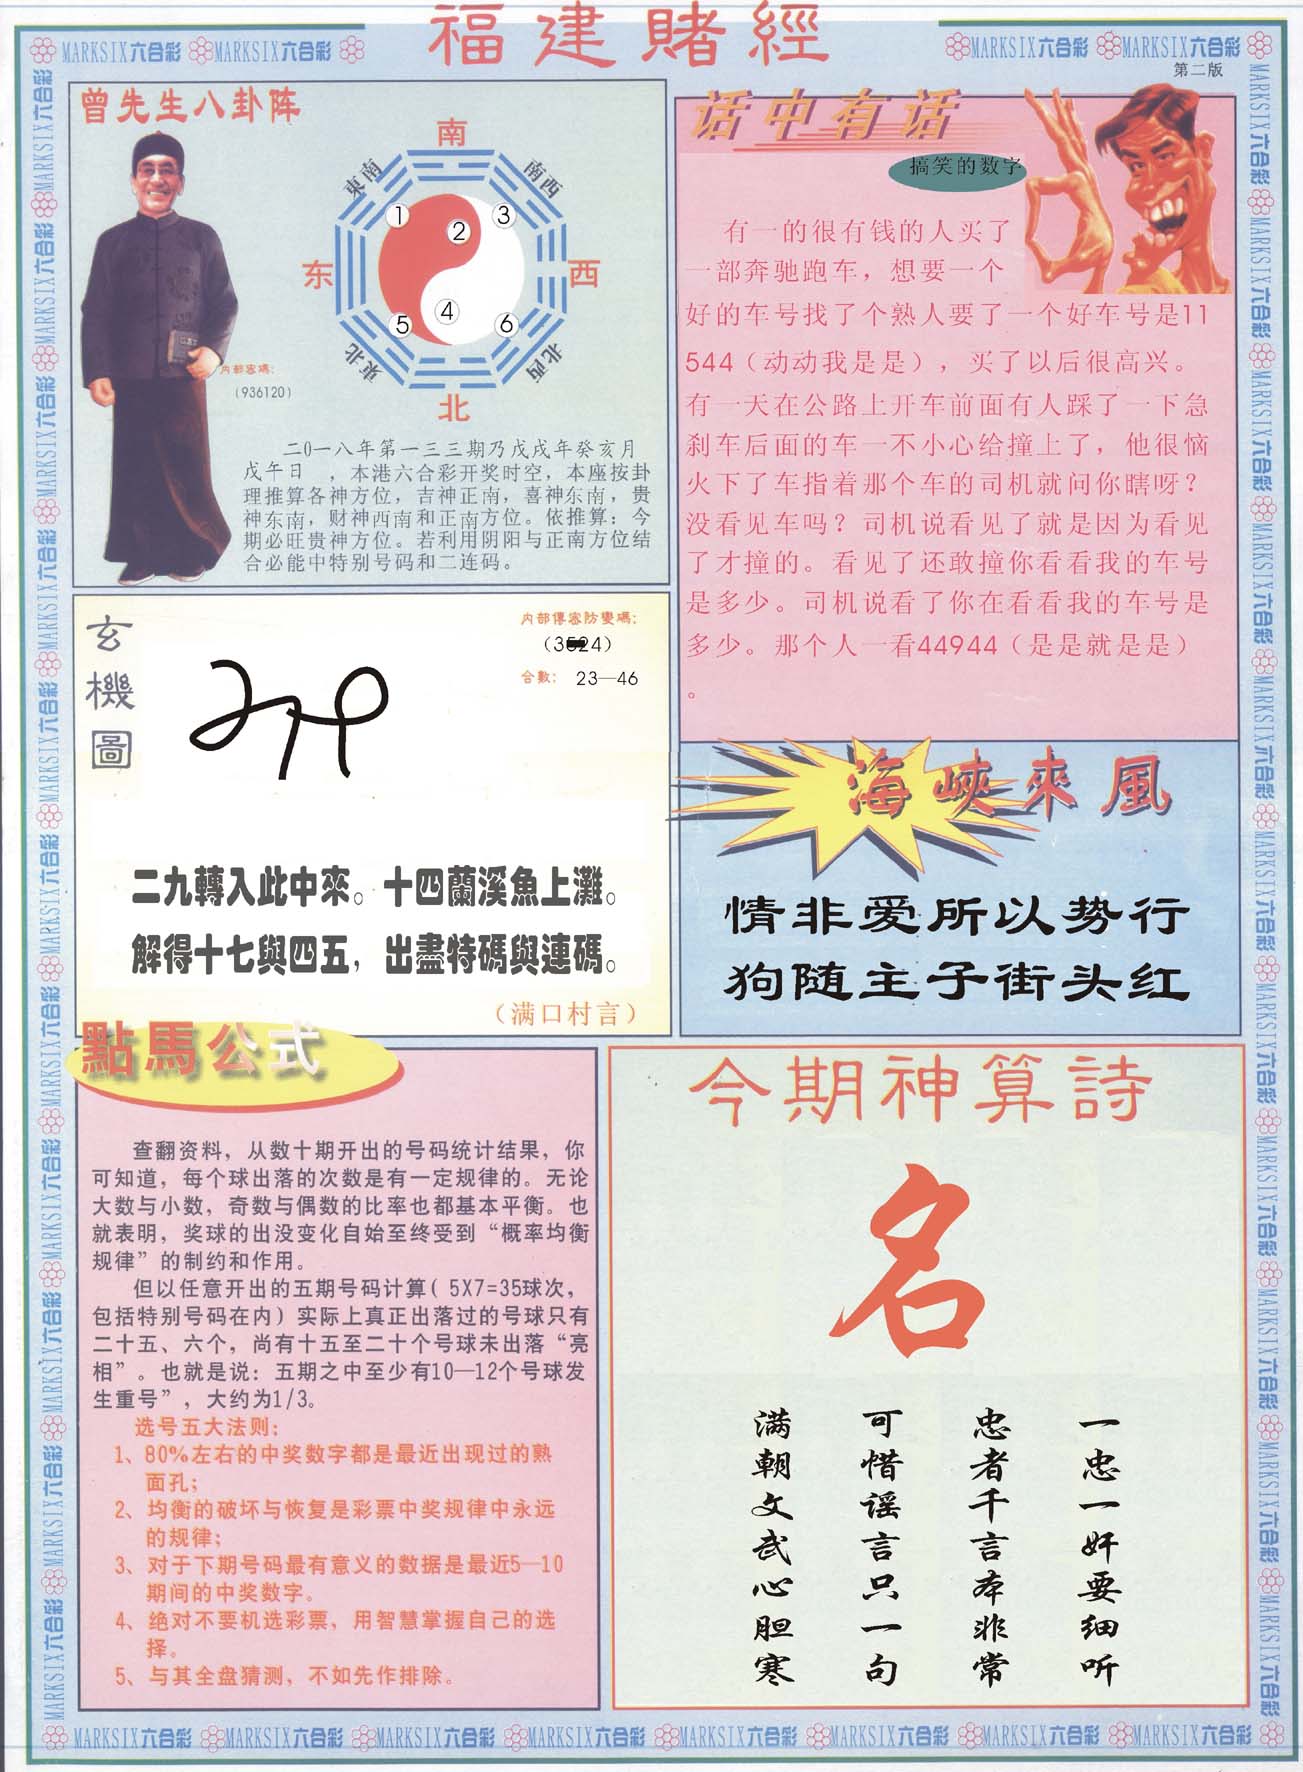 福建賭經
MARKSIX六合彩 MARKSIX六合彩
MARKSIX六合彩 MARKSIX六合彩
第二版
曾先生八卦阵
南
東南
南西
1
2
3
东
西
4
5
6
東北
北西
北
内部密碼:
(936120)
二0一八年第一三三期乃戊戌年癸亥月
戊午日 ，本港六合彩开奖时空，本座按卦
理推算各神方位，吉神正南，喜神东南，贵
神东南，财神西南和正南方位。依推算：今
期必旺贵神方位。若利用阴阳与正南方位结
合必能中特别号码和二连码。
话中有话
搞笑的数字
有一的很有钱的人买了
一部奔驰跑车，想要一个
好的车号找了个熟人要了一个好车号是11
544（动动我是是），买了以后很高兴。
有一天在公路上开车前面有人踩了一下急
刹车后面的车一不小心给撞上了，他很恼
火下了车指着那个车的司机就问你瞎呀？
没看见车吗？司机说看见了就是因为看见
了才撞的。看见了还敢撞你看看我的车号
是多少。司机说看了你在看看我的车号是
多少。那个人一看44944（是是就是是）
。
玄機圖
内部傳密防變碼:
合數: 23—46
二九轉入此中來。十四蘭溪魚上灘。
解得十七與四五，出盡特碼與連碼。
（满口村言）
海峽來風
情非爱所以势行
狗随主子街头红
點馬公式
查翻资料，从数十期开出的号码统计结果，你
可知道，每个球出落的次数是有一定规律的。无论
大数与小数，奇数与偶数的比率也都基本平衡。也
就表明，奖球的出没变化自始至终受到“概率均衡
规律”的制约和作用。
但以任意开出的五期号码计算( 5X7=35球次，
包括特别号码在内）实际上真正出落过的号球只有
二十五、六个，尚有十五至二十个号球未出落“亮
相”。也就是说：五期之中至少有10—12个号球发
生重号”，大约为1/3。
选号五大法则：
1、80%左右的中奖数字都是最近出现过的熟
面孔；
2、均衡的破坏与恢复是彩票中奖规律中永远
的规律；
3、对于下期号码最有意义的数据是最近5—10
期间的中奖数字。
4、绝对不要机选彩票，用智慧掌握自己的选
择。
5、与其全盘猜测，不如先作排除。
今期神算詩
名
一忠一奸要细听
忠者千言本非常
可惜谣言只一句
满朝文武心胆寒
MARKSIX六合彩 MARKSIX六合彩 MARKSIX六合彩 MARKSIX六合彩 MARKSIX六合彩 MARKSIX六合彩 MARKSIX六合彩 MARKSIX六合彩